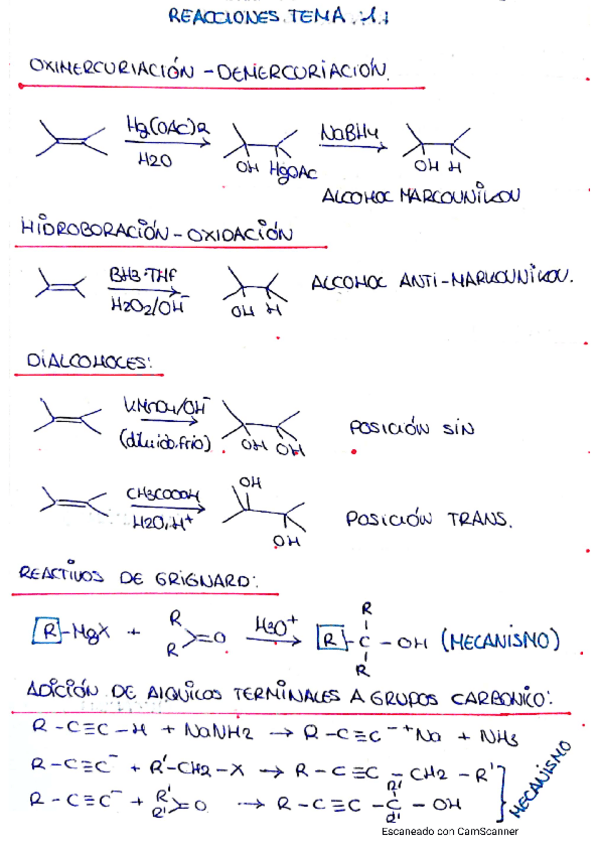 REACCIONES.TEMA.1.:
OXIMERCURIACIÓN-DEMERCURIACIÓN.
Hg(OAc)R
H2O
NaBH4
OH HgOAc
OH H
ALCOHOC MARCOUNIKOU
HIDROBORACIÓN-OXIDACIÓN
BH3·THF
H2O2/OH⁻
OH H
ALCOHOC ANTI-MARKOUNIKOU.
DIALCOHOCES:
KMnO4/OH⁻
(diluido.frio)
OH OH
POSICIÓN SIN
CH3COOOH
H2O,H⁺
OH
OH
POSICIÓN TRANS.
REACTIVOS DE GRIGNARD:
R-MgX + R R =O H3O⁺ R-C-OH (MECANISMO)
R
R
ADICIÓN DE AIQUICOS TERMINALES A GRUPOS CARBONICO:
R-C≡C-H + NaNH2 → R-C≡C⁻⁺Na + NH3
R-C≡C⁻ + R'-CH2-X → R-C≡C-CH2-R'
R-C≡C⁻ + R' R' =O → R-C≡C-C-OH
R'
R'
MECANISMO
Escaneado con CamScanner